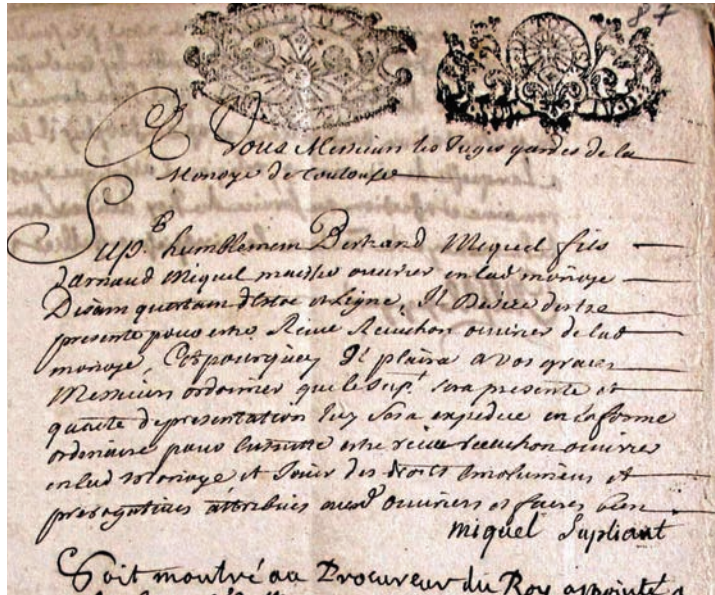 87
A Vous Messieurs les Juges gardes de la
Monoye de Toulouse
Sup.e humblement Bertrand Miquel fils
darnaud Miquel maistre ouvrier en lad monoye
Disant questant destoc et ligne, Il Desire destre
presenté pour estre Receu Recuchon ouvrier de lad
monoye, Cest pourquoy Il plaira a vos graces
Messieurs ordonner que le sup.t sera presenté et
quacte de presentation luy sera expedié en la forme
ordinaire pour Ensuitte estre receu recuchon ouvrier
en lad Monoye et Jouir des droits Emolumens et
prerogatives attribués ausd ouvriers et faires bien
miquel Supliant
Soit montré au Procureur du Roy appointé a